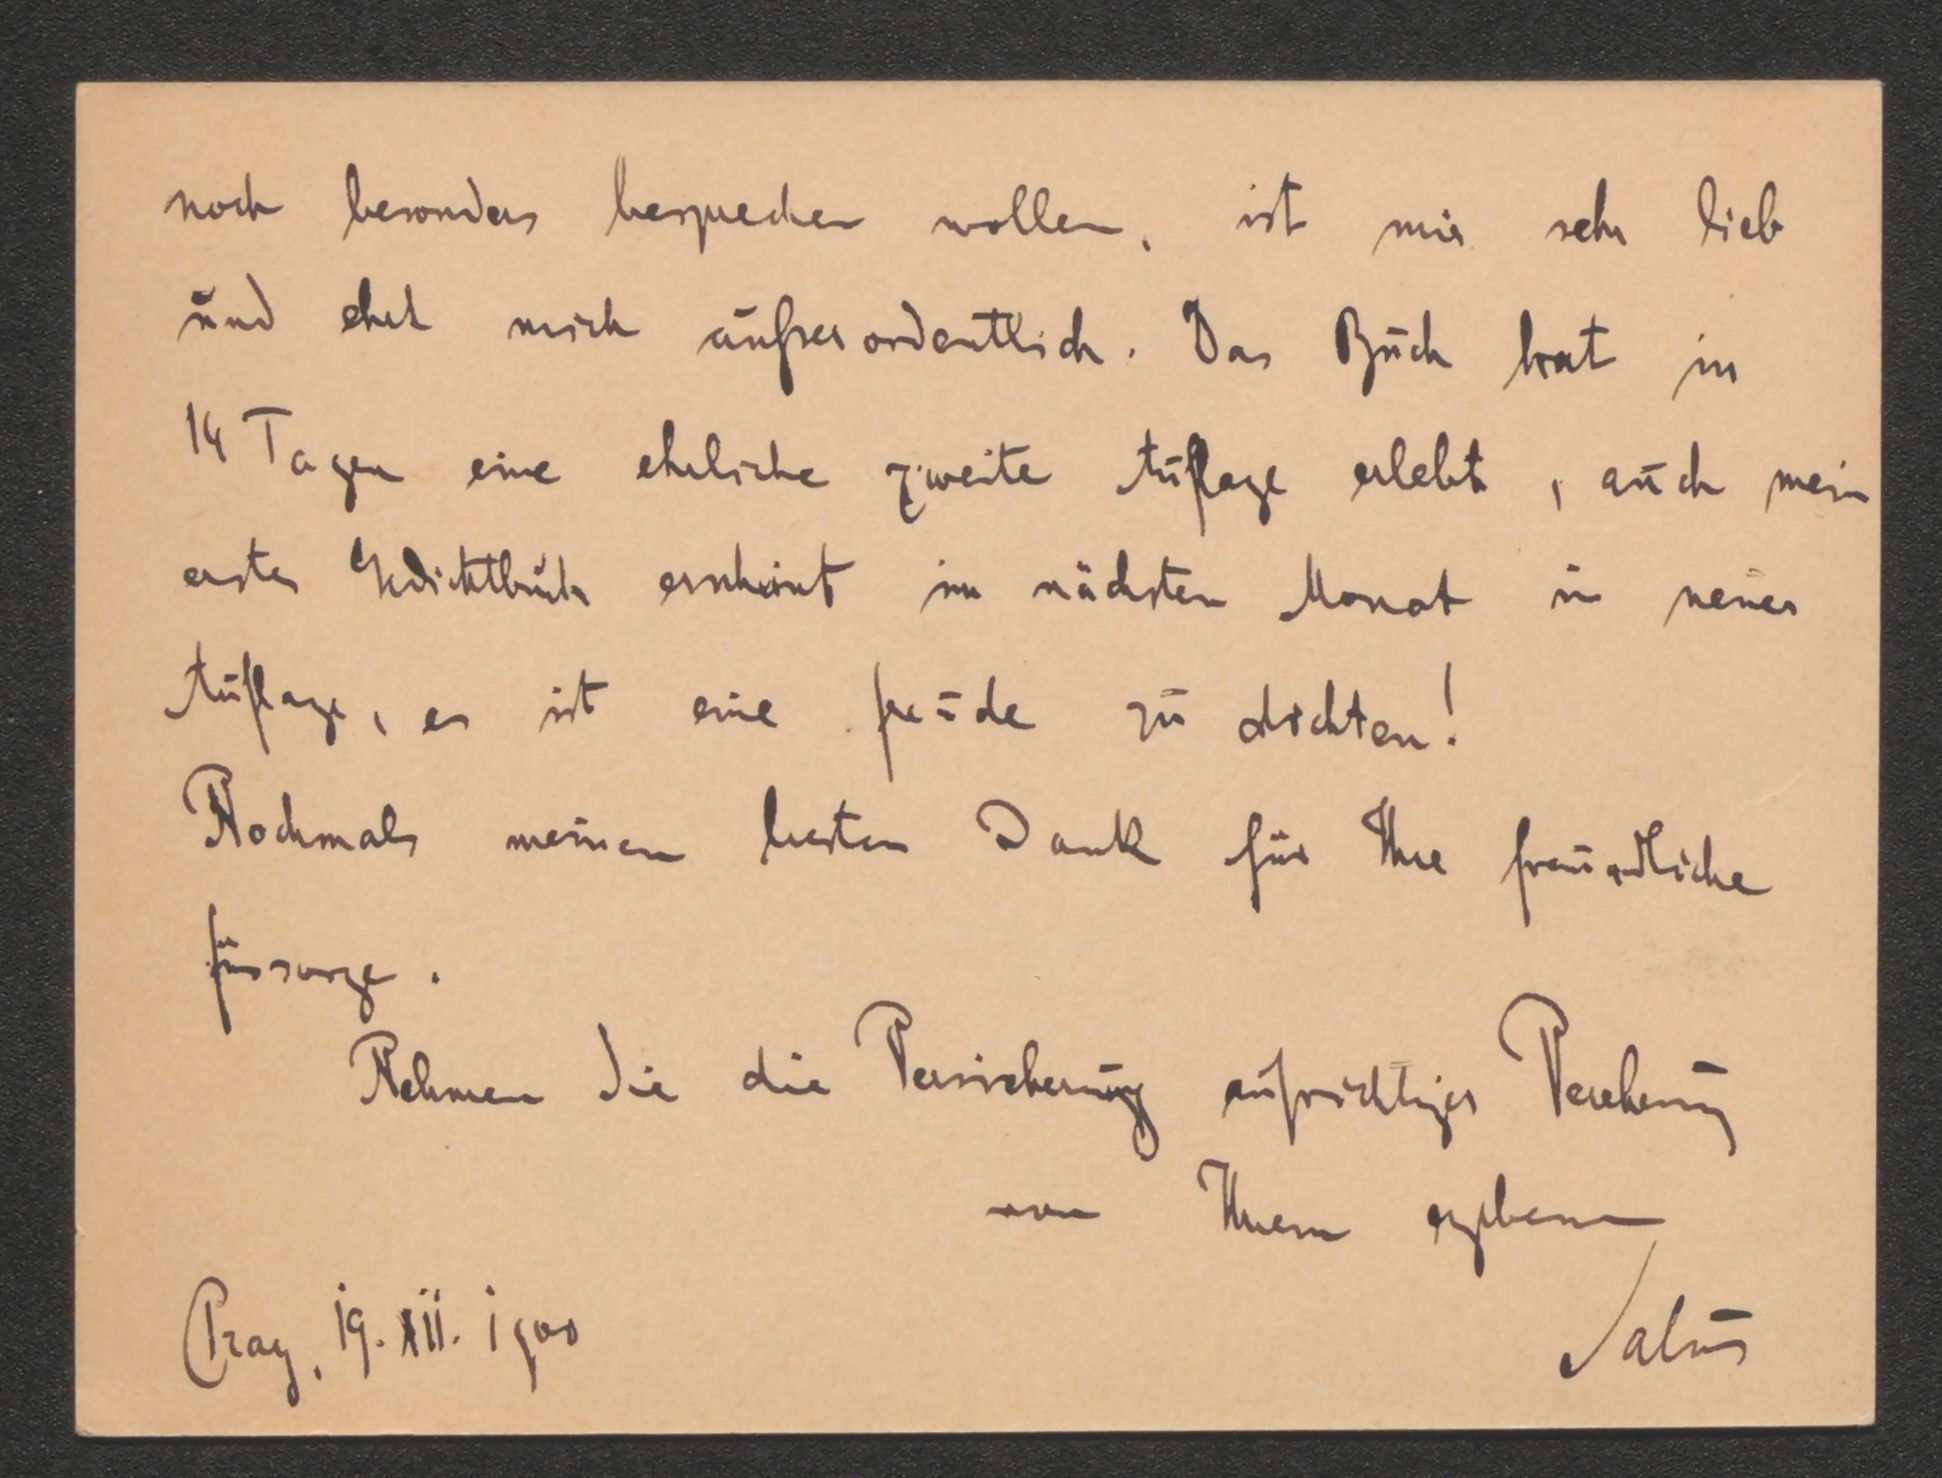 noch besonders besprechen wollen, ist mir sehr lieb
und ehrt mich außerordentlich. Das Buch hat in
14 Tagen eine ehrliche zweite Auflage erlebt, auch mein
erstes Gedichtbuch erscheint im nächsten Monat in neuer
Auflage, es ist eine Freude zu dichten!
Nochmals meinen besten Dank für Ihre freundliche
Fürsorge.
Nehmen Sie die Versicherung aufrichtiger Verehrung
von Ihrem ergebenen
Prag, 19. XII. 1900 Salus